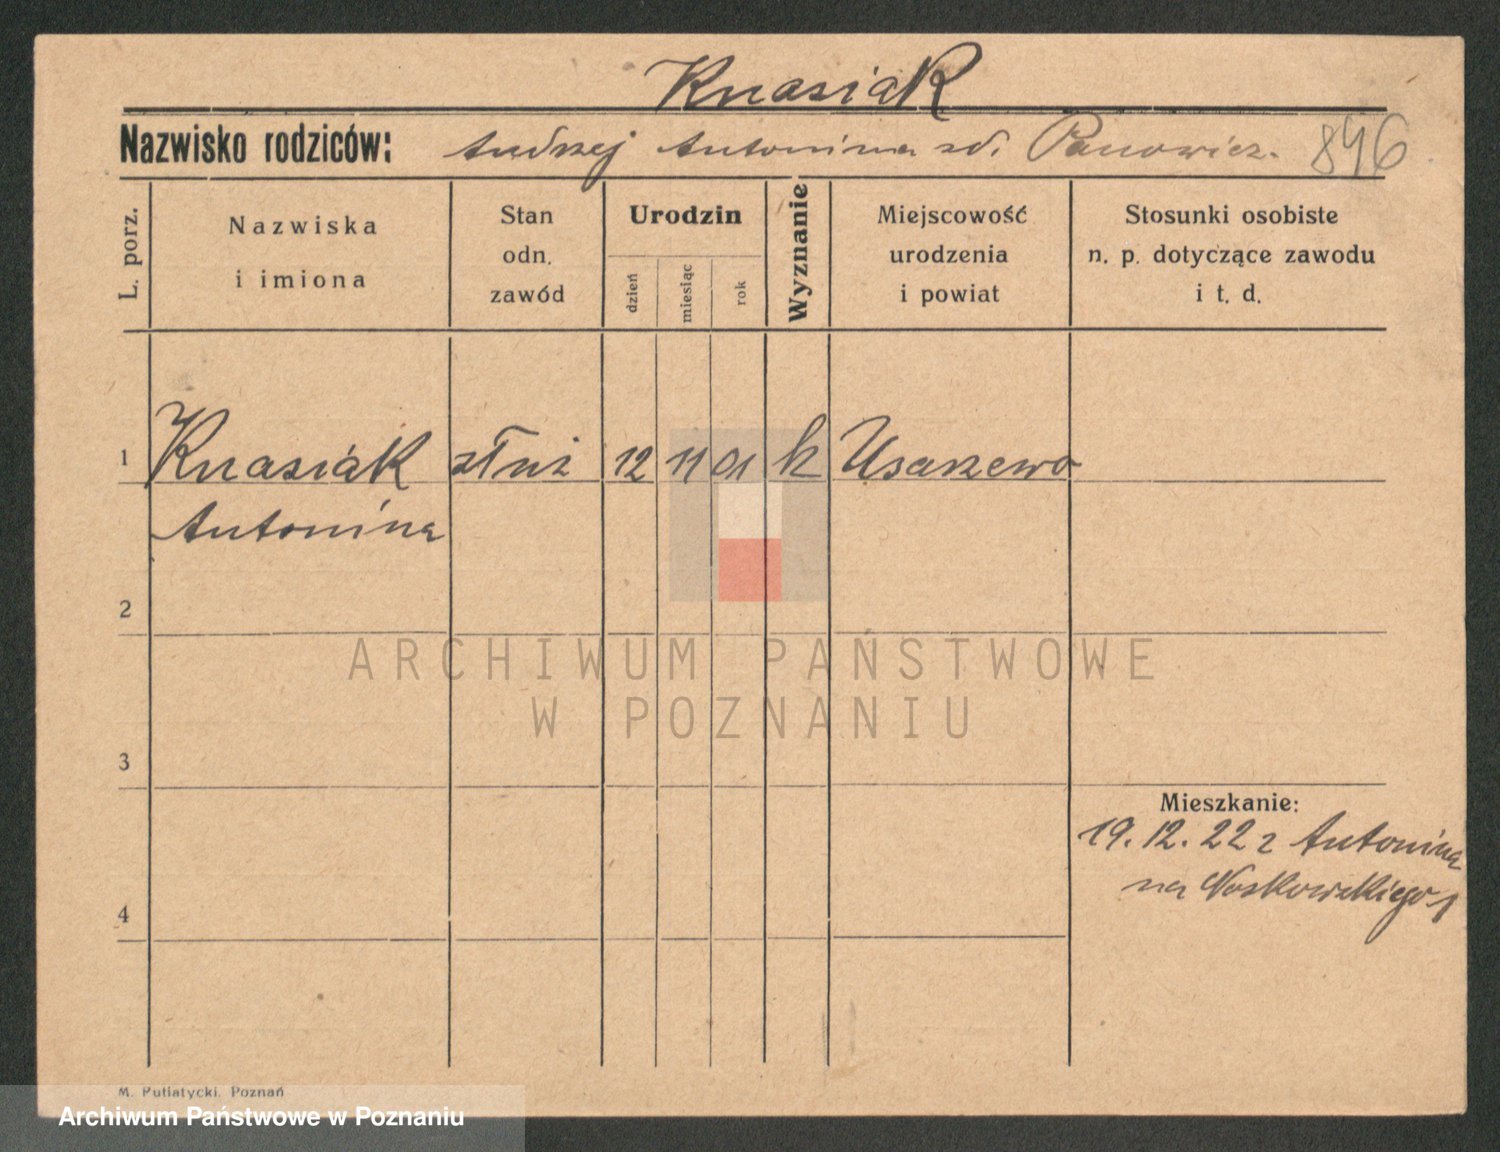 Knasiak
Nazwisko rodziców: Andrzej Antonina zd. Panowicz. 896
L. porz.
Nazwiska
i imiona
Stan
odn.
zawód
Urodzin
dzień
miesiąc
rok
Wyznanie
Miejscowość
urodzenia
i powiat
Stosunki osobiste
n. p. dotyczące zawodu
i t. d.
1 Knasiak służ 12 11 01 k Usarzewo
Antonina
2
ARCHIWUM PAŃSTWOWE
W POZNANIU
3
Mieszkanie:
19.12.22 z Antonina
na Noskowskiego 1
4
M. Putiatycki. Poznań
Archiwum Państwowe w Poznaniu